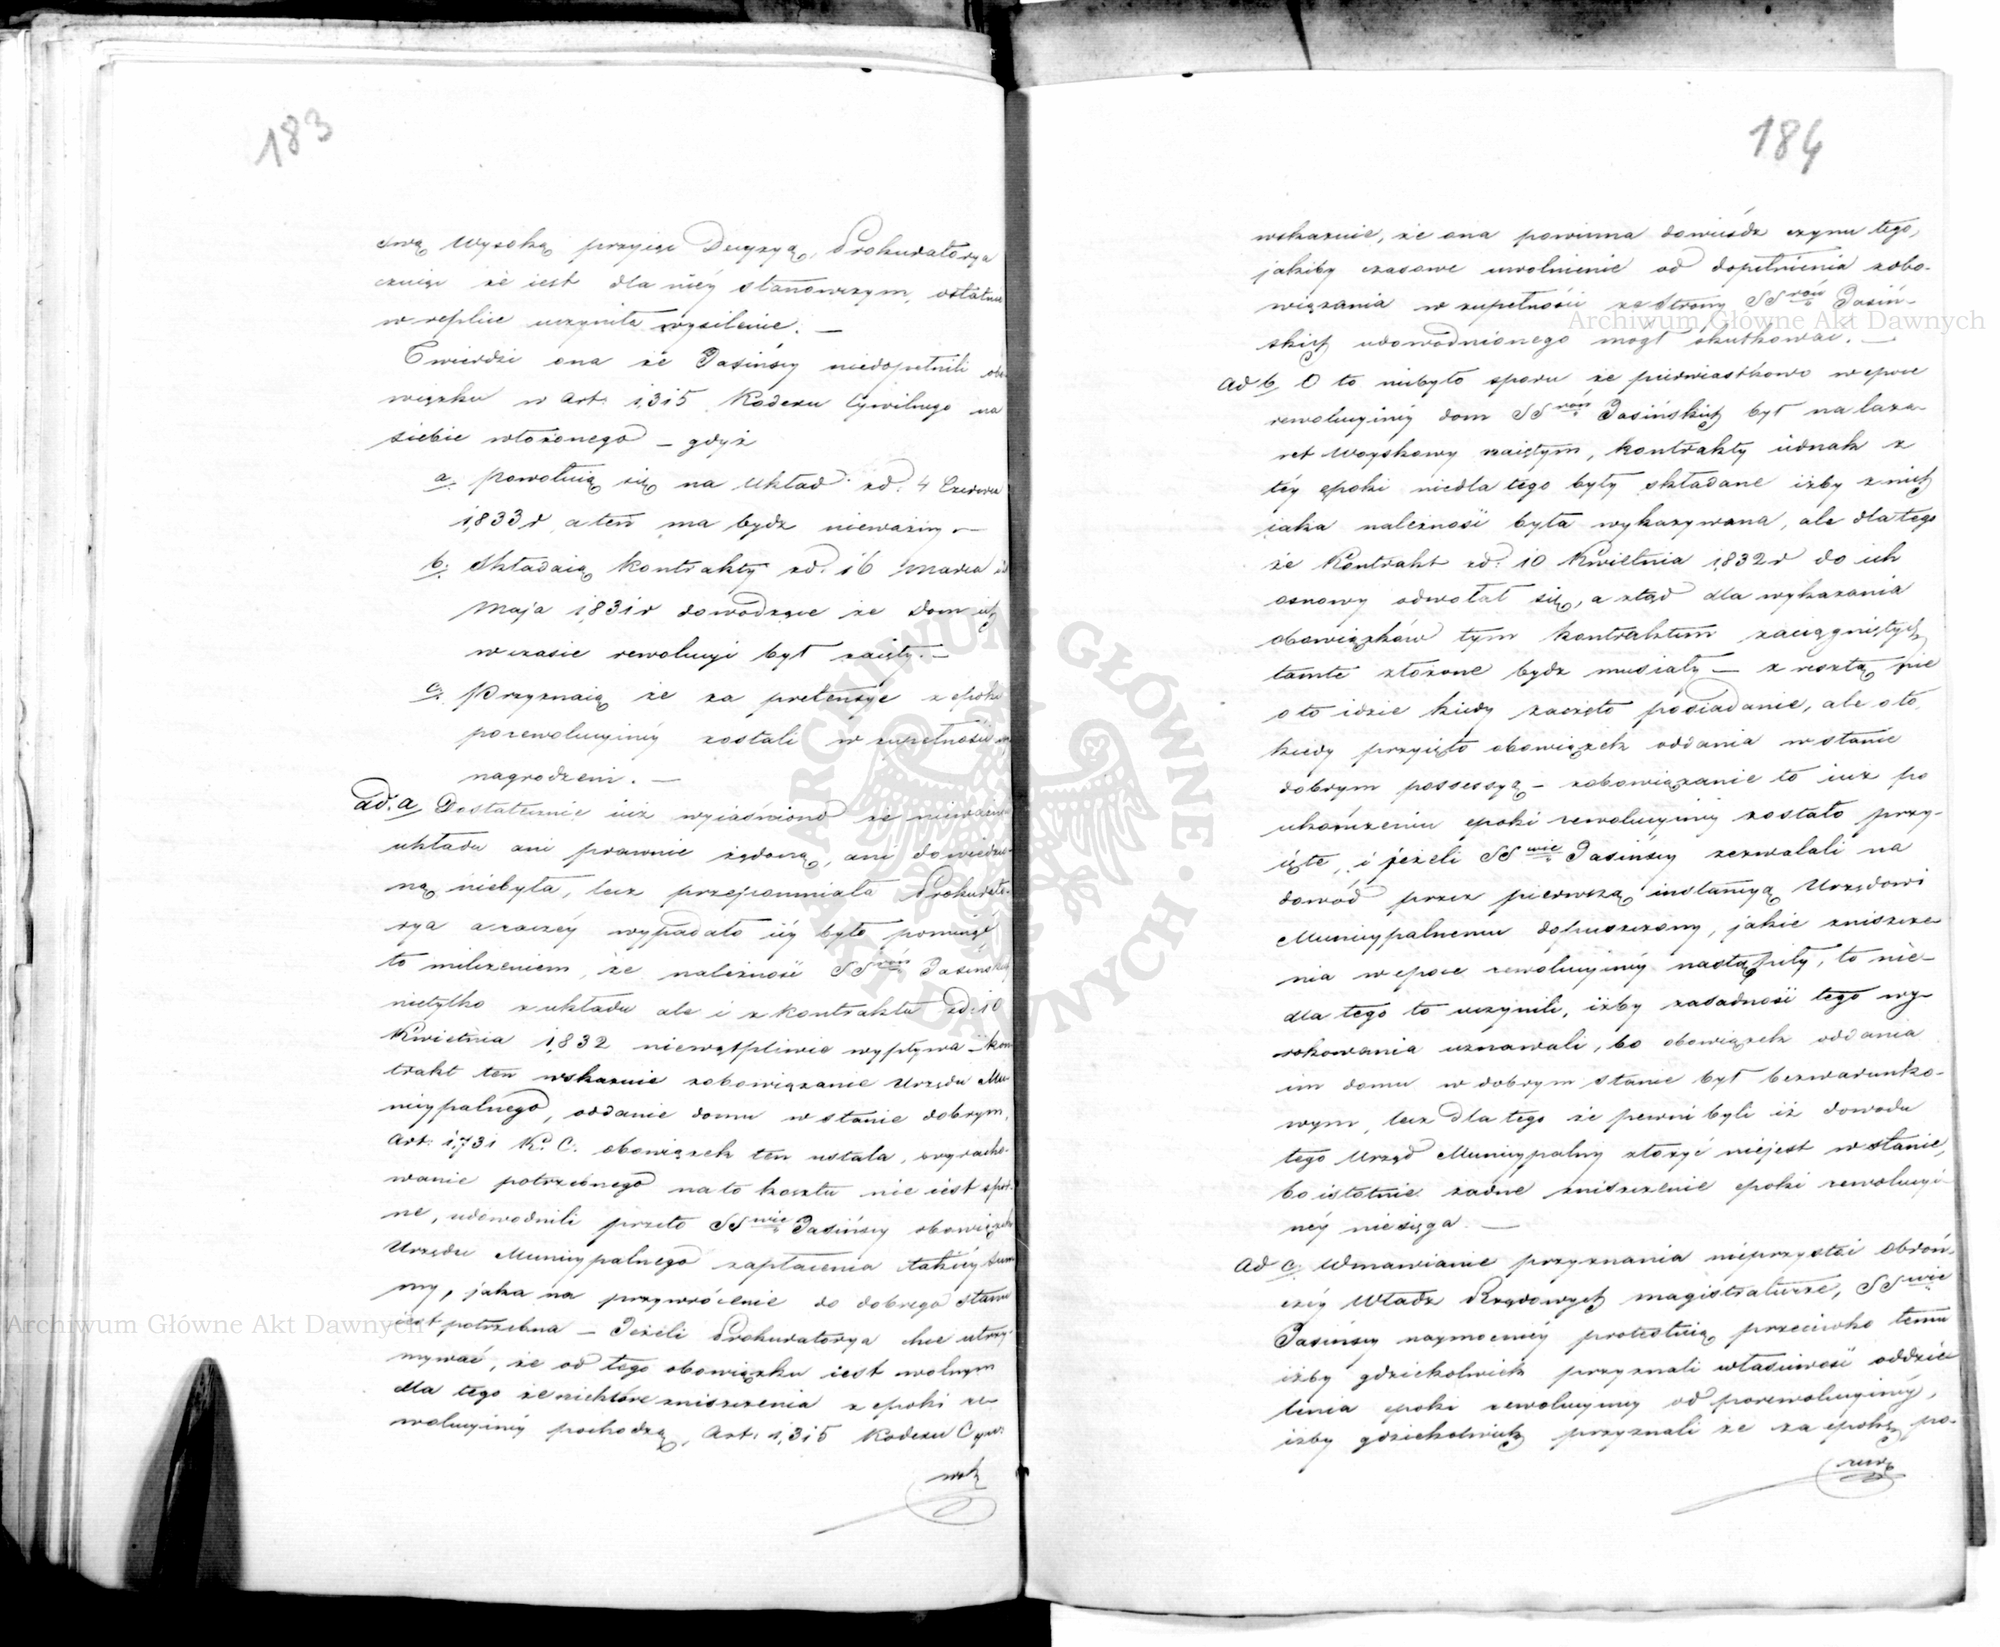 183
swą Wysoką przyiąć Decyzyą, Prokuratorya
czuiąc że iest dla niéy stanowczym, ostatnie
w replice uczyniła wysilenie. —
Twierdzi ona że Jasińscy niedopełnili obo-
wiązku w Art: 1,315 Kodexu Cywilnego na
siebie włożonego — gdyż
a. Powołuią się na Układ zd. 4 Czerwca
1833 r. a ten ma bydz nieważny —
b. Składaią kontrakty zd. 16 Marca
Maja 1831 r dowodzące że Dom ich
w czasie rewolucyi był zaięty. —
c. Przyznaią że za pretensye z epoki
porewolucyinéy zostali w zupełności
nagrodzeni. —
ad. a Dostatecznie iuż wyiaśniono że nieważno
układu ani prawnie żądoną, ani dowiedzio-
ną niebyła, lecz przepomniała Prokurato-
rya a raczéy wypadało iéy było pominąć
to milczeniem, że należność SS^rów Jasińskich
nietylko z układu ale i z kontraktu zd: 10
Kwietnia 1832 niewątpliwie wypływa — kon
trakt ten wskazuie zobowiązanie Urzędu Mu-
nicypalnego, oddanie domu w stanie dobrym,
Art: 1,731 K. C. obowiązek ten ustala, wyracho-
wanie potrzebnego na to kosztu nie iest spor-
ne, udowodnili przeto SS^wie Jasińscy obowiązek
Urzędu Municypalnego zapłacenia takiéy sum
my, jaka na przywrócenie do dobrego stanu
iest potrzebna — Jeżeli Prokuratorya chce utrzy-
mywać, że od tego obowiązku iest wolnym
dla tego że niektóre zniszczenia z epoki re-
wolucyinéy pochodzą, Art: 1,315 Kodexu Cywil
wsk
184
wskazuie, że ona powinna dowieśdz czynu tego,
jakiby czasowe uwolnienie od dopełnienia zobo-
wiązania w zupełności ze strony SS^rów Jasiń-
skich udowodnionego mógł skutkować. —
Ad b O to niebyło sporu że pierwiastkowo w epoce
rewolucyinéy dom SS^rów Jasińskich był na laza-
ret Woyskowy zaiętym, kontrakty iednak z
téy epoki niedla tego były składane iżby z nich
iaka należność była wykazywana, ale dla tego
że Kontrakt zd. 10 Kwietnia 1832 r do ich
osnowy odwołał się, a ztąd dla wykazania
obowiązków tym kontraktem zaciągniętych
tamte złożone bydz musiały — z resztą nie
o to idzie kiedy zaczęto posiadanie, ale o to,
kiedy przyięto obowiązek oddania w stanie
dobrym possessyą — zobowiązanie to iuż po
ukończeniu epoki rewolucyinéy zostało przy-
ięte, i jeżeli SS^wie Jasińscy zezwalali na
dowód przez pierwszą instancyą Urzędowi
Municypalnemu dopuszczony, jakie zniszcze-
nia w epoce rewolucyinéy nastąpiły, to nie-
dla tego to uczynili, iżby zasadność tego wy-
rokowania uznawali, bo obowiązek oddania
im domu w dobrym stanie był bezwarunko-
wym, lecz dla tego że pewni byli iż dowodu
tego Urząd Municypalny złożyć niejest w stanie,
bo istotnie żadne zniszczenie epoki rewolucyi-
néy niesięga. —
Ad c. Wmawianie przyznania nieprzystoi obroń-
czéy Władz Rządowych magistraturze, SS^wie
Jasińscy naymocniéy protestuią przeciwko temu
iżby gdziekolwiek przyznali właściwość oddzie-
lenia epoki rewolucyinéy od porewolucyinéy,
iżby gdziekolwiek przyznali że za epokę po-
rewo
Archiwum Główne Akt Dawnych
Archiwum Główne Akt Dawnych
ARCHIWUM GŁÓWNE AKT DAWNYCH